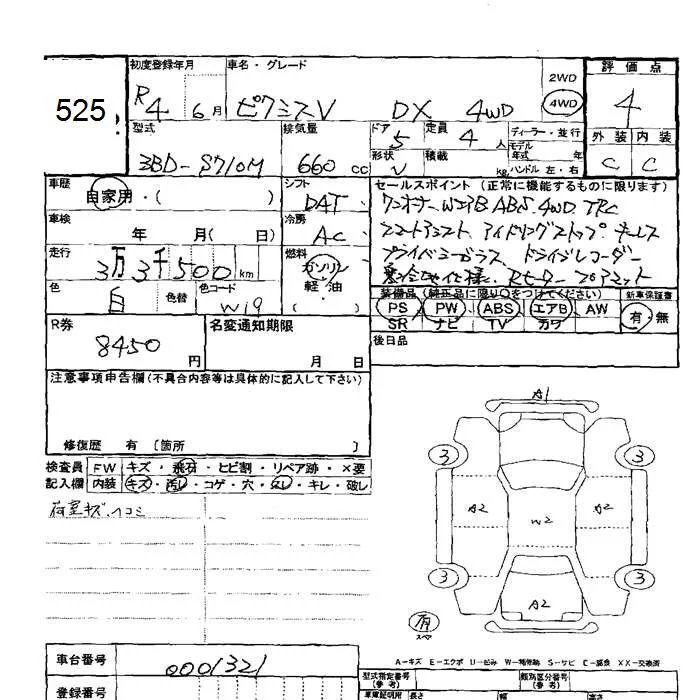 525
初度登録年月 車名・グレード 2WD 評価点
R4 6月 ピクシスV DX 4WD 4WD 4
型式 排気量 ドア 5 定員 4人 ディーラー・並行 外装 内装
3BD-S710M 660cc 形状 V 積載 kg モデル年式 年 ハンドル 左・右 C C
車歴 自家用・( ) シフト DAT セールスポイント (正常に機能するものに限ります)
車検 年 月( 日) 冷房 AC ワンオーナー WエアB ABS 4WD TRC
走行 3万3千500km 燃料 ガソリン 軽・油 ( ) スマートアシスト アイドリングストップ キーレス
プライバシーガラス ドライブレコーダー
色 白 色替 色コード W19
装備品 (純正品に限り○をつけてください) 新車保証書
PS PW ABS エアB AW 有・無
SR ナビ TV カワ
R券 8450円 名変通知期限 月 日 後日品
注意事項申告欄(不具合内容等は具体的に記入して下さい)
修復歴 有 [箇所 ]
検査員 FW キズ・飛石・ヒビ割・リペア跡・×要
記入欄 内装 キズ・汚レ・コゲ・穴・スレ・キレ・破レ
荷室キズ、ヘコミ
A1
3 3
A2 W2 A2
3 3
A2
有
スペア
A-キズ E-エクボ U-凹み W-補修跡 S-サビ C-腐食 XX-交換済
車台番号 0001321
型式指定番号 (参考) 類別区分番号 (参考)
登録番号 車庫証明用 長さ 幅 高さ